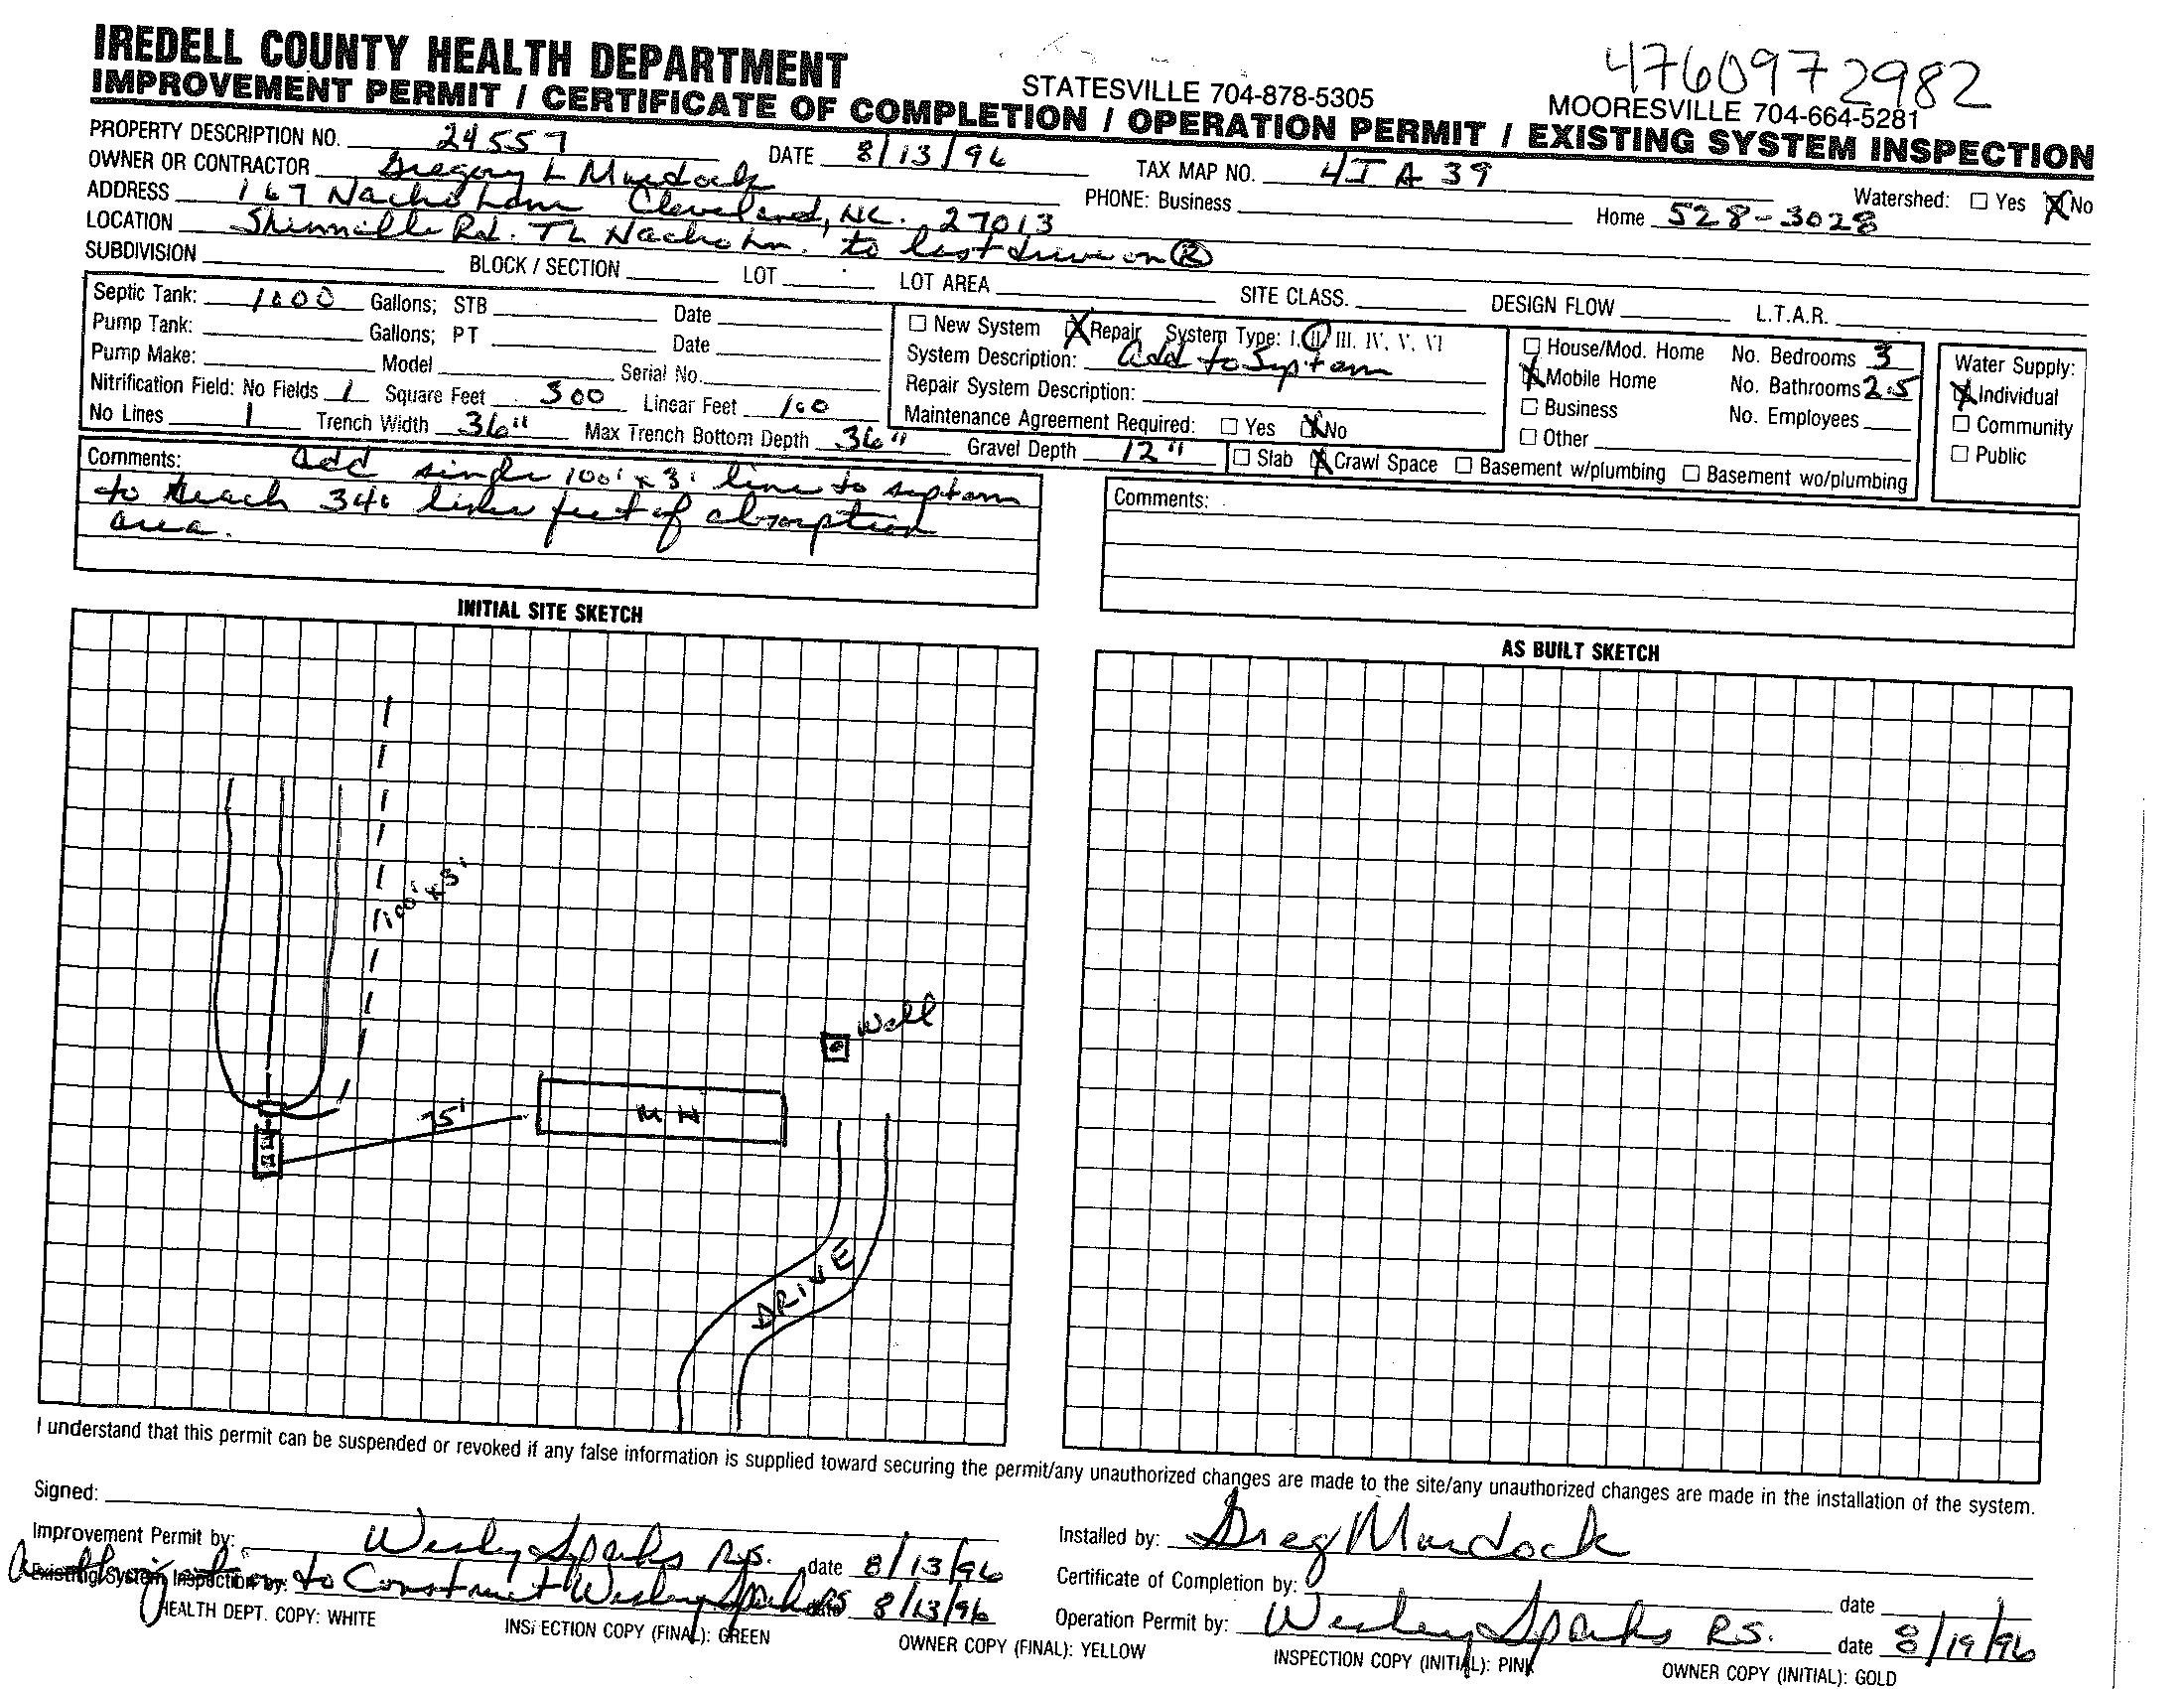 IREDELL COUNTY HEALTH DEPARTMENT
STATESVILLE 704-878-5305
4760972982
MOORESVILLE 704-664-5281
IMPROVEMENT PERMIT / CERTIFICATE OF COMPLETION / OPERATION PERMIT / EXISTING SYSTEM INSPECTION
PROPERTY DESCRIPTION NO. 24557 DATE 8/13/96 TAX MAP NO. 4I A 39 Watershed: Yes No
OWNER OR CONTRACTOR Gregory L Murdock PHONE: Business Home 528-3028
ADDRESS 167 Nacho Lane Cleveland, NC. 27013
LOCATION Shinnville Rd. TL Nacho Ln. to last drive on R
SUBDIVISION BLOCK / SECTION LOT LOT AREA SITE CLASS. DESIGN FLOW L.T.A.R.
Septic Tank: 1000 Gallons; STB Date
Pump Tank: Gallons; PT Date
Pump Make: Model Serial No.
Nitrification Field: No Fields 1 Square Feet 300 Linear Feet 100
No Lines 1 Trench Width 36" Max Trench Bottom Depth 36" Gravel Depth 12"
New System Repair System Type: I. II III. IV. V. VI
System Description: add to system
Repair System Description:
Maintenance Agreement Required: Yes No
House/Mod. Home No. Bedrooms 3
Mobile Home No. Bathrooms 2.5
Business No. Employees
Other
Slab Crawl Space Basement w/plumbing Basement wo/plumbing
Water Supply:
Individual
Community
Public
Comments: add single 100' x 3' line to system
to reach 340 linear feet of absorption
area.
Comments:
INITIAL SITE SKETCH
AS BUILT SKETCH
100' x 3'
Well
75'
M H
DRIVE
I understand that this permit can be suspended or revoked if any false information is supplied toward securing the permit/any unauthorized changes are made to the site/any unauthorized changes are made in the installation of the system.
Signed:
Improvement Permit by: Wesley Sparks R.S. date 8/13/96
Existing System Inspection by: Authorization to Construct Wesley Sparks RS date 8/13/96
Installed by: Greg Murdock
Certificate of Completion by: date
Operation Permit by: Wesley Sparks R.S. date 8/19/96
HEALTH DEPT. COPY: WHITE INSPECTION COPY (FINAL): GREEN OWNER COPY (FINAL): YELLOW INSPECTION COPY (INITIAL): PINK OWNER COPY (INITIAL): GOLD